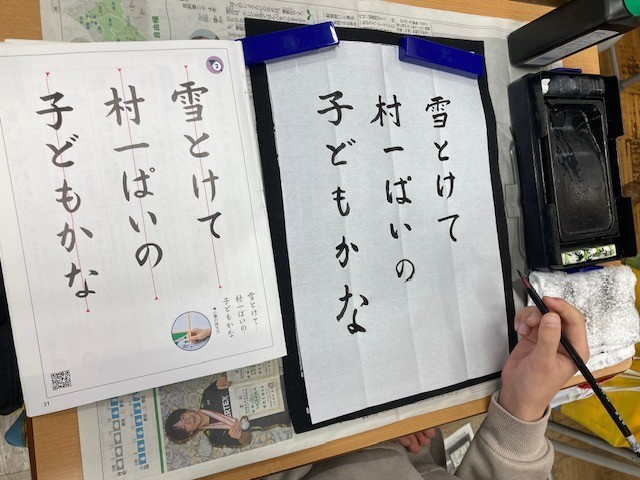 雪とけて
村一ぱいの
子どもかな
雪とけて
村一ぱいの
子どもかな
雪とけて
村一ぱいの
子どもかな
31